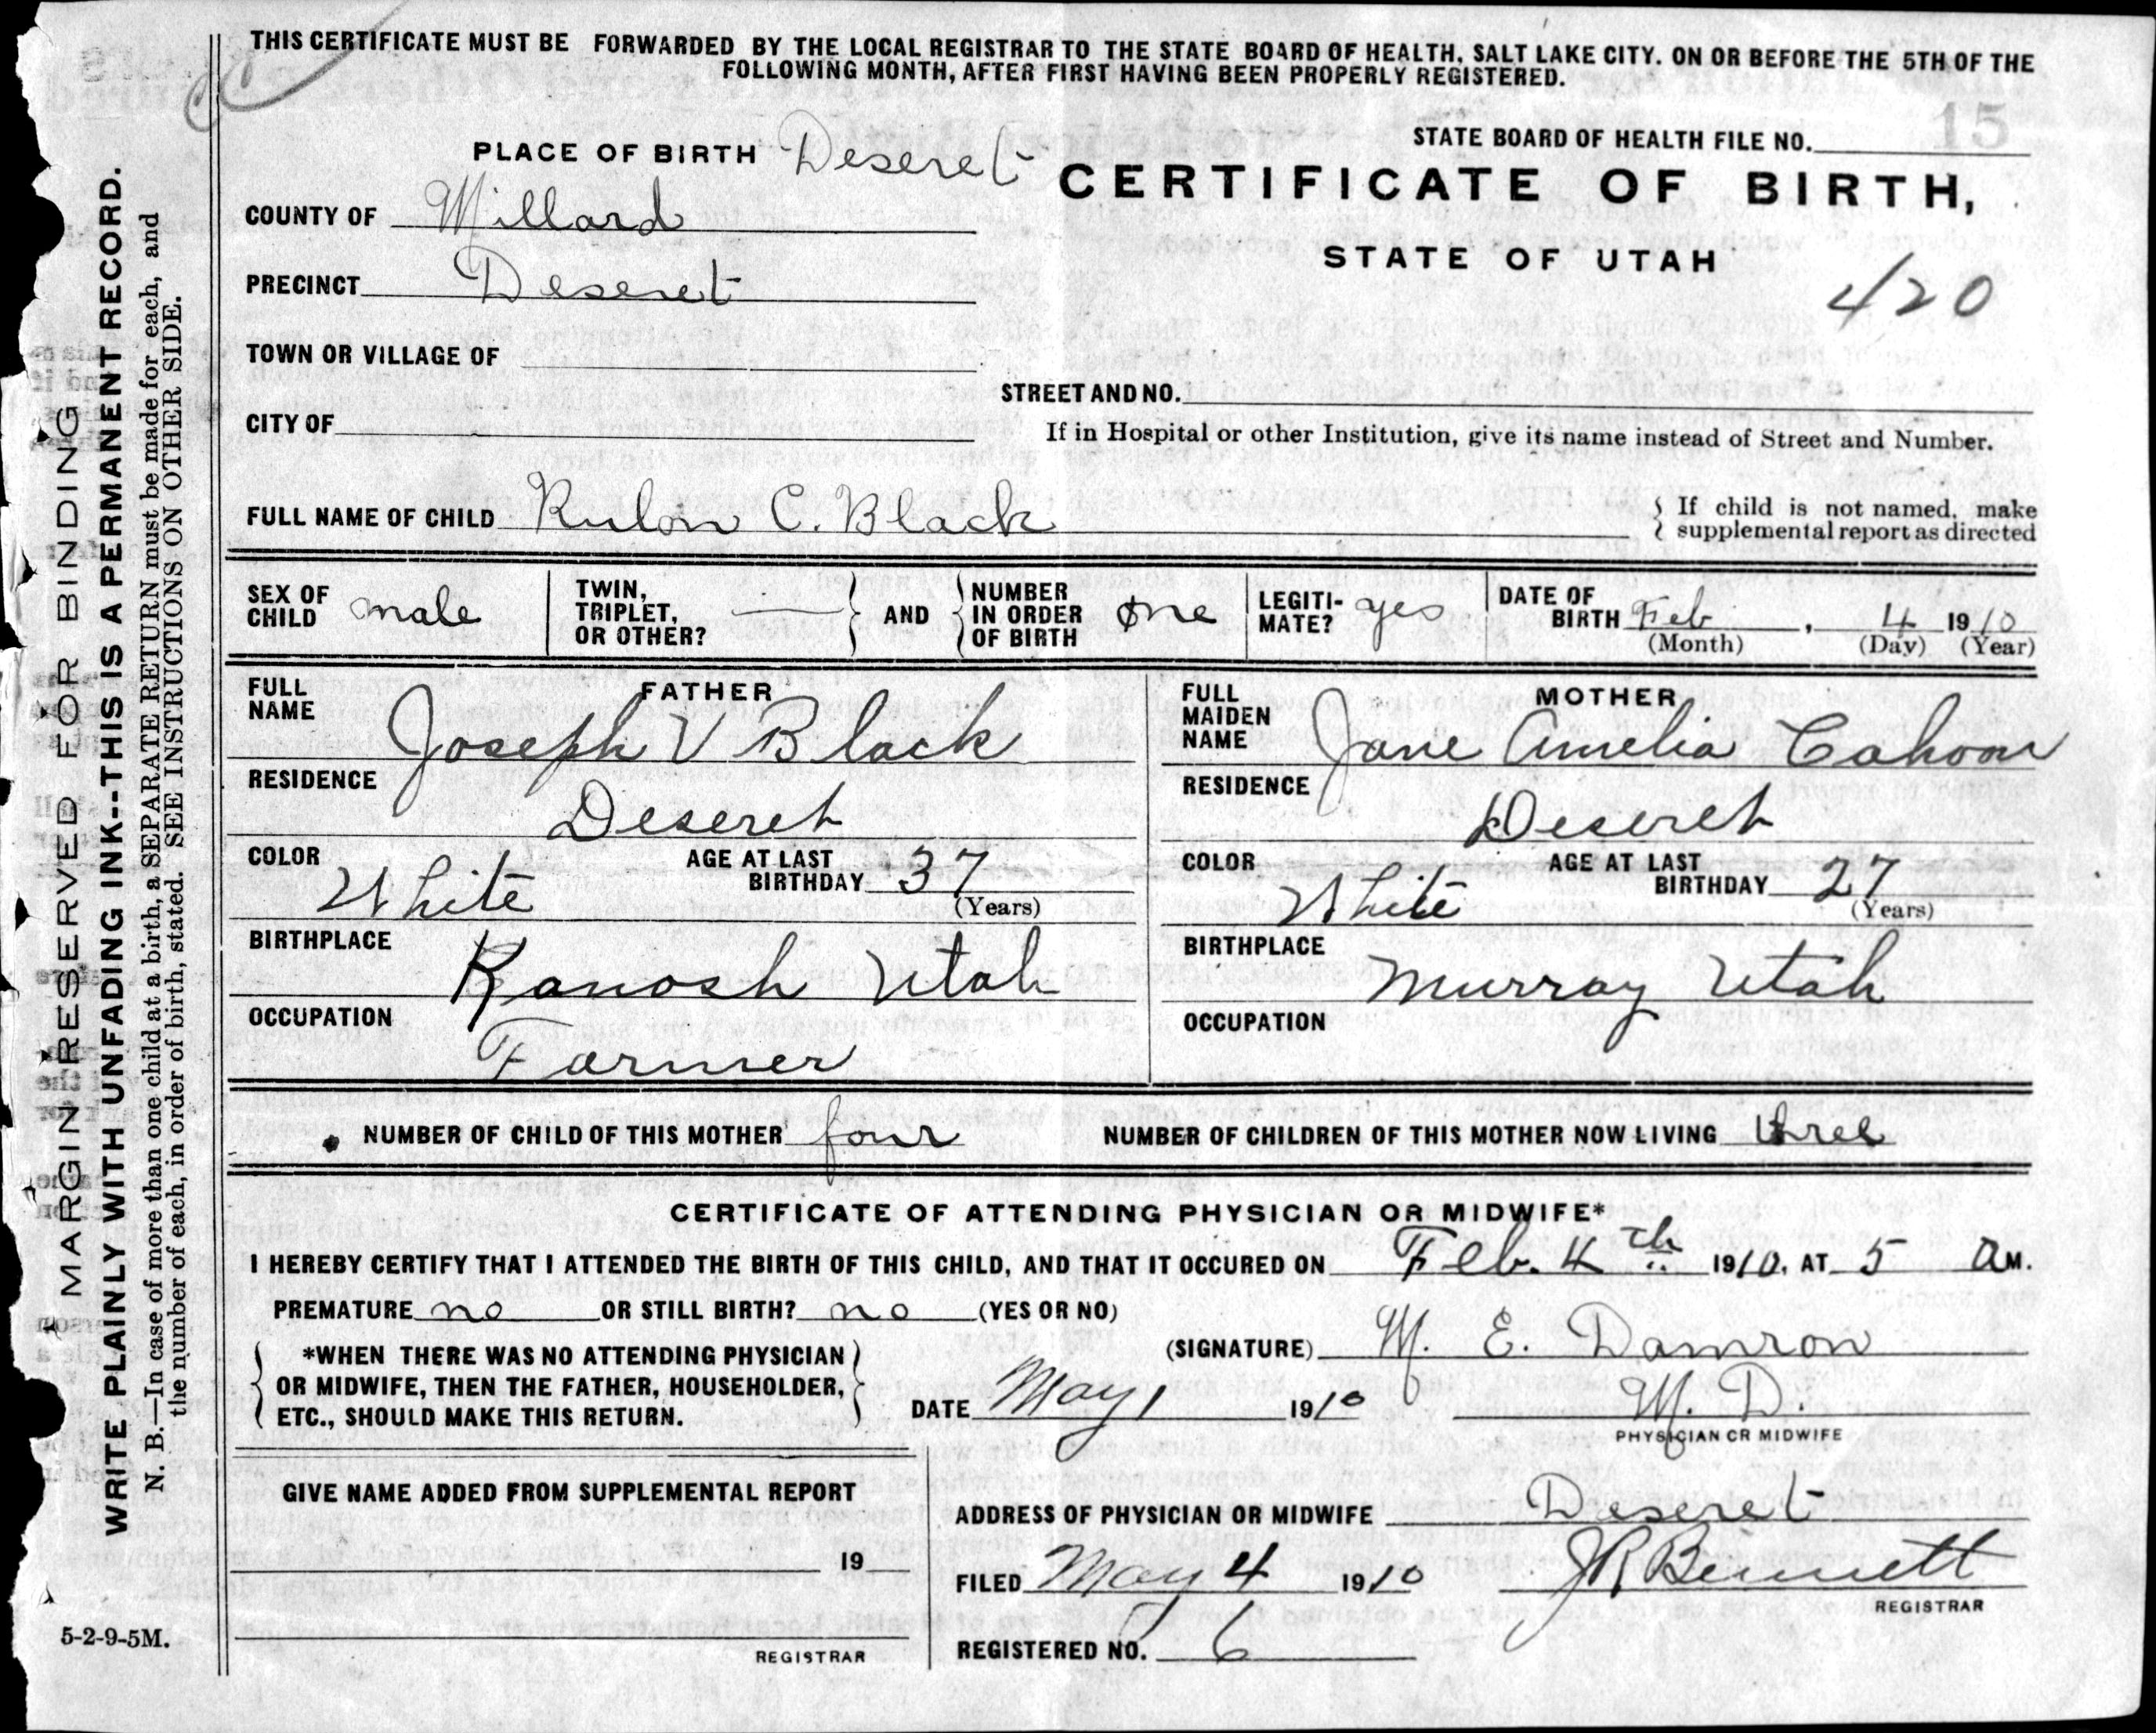 THIS CERTIFICATE MUST BE FORWARDED BY THE LOCAL REGISTRAR TO THE STATE BOARD OF HEALTH, SALT LAKE CITY. ON OR BEFORE THE 5TH OF THE
FOLLOWING MONTH, AFTER FIRST HAVING BEEN PROPERLY REGISTERED.
PLACE OF BIRTH Deseret
STATE BOARD OF HEALTH FILE NO. 15
CERTIFICATE OF BIRTH,
STATE OF UTAH
420
COUNTY OF Millard
PRECINCT Deseret
TOWN OR VILLAGE OF
STREET AND NO.
CITY OF
If in Hospital or other Institution, give its name instead of Street and Number.
FULL NAME OF CHILD Rulon C. Black
{ If child is not named, make
{ supplemental report as directed
SEX OF CHILD male
TWIN, TRIPLET, OR OTHER? — } AND { NUMBER IN ORDER OF BIRTH One
LEGITI-MATE? yes
DATE OF BIRTH Feb, 4 1910
(Month) (Day) (Year)
FATHER
FULL NAME Joseph V Black
RESIDENCE
Deseret
COLOR White AGE AT LAST BIRTHDAY 37
(Years)
BIRTHPLACE
Kanosh Utah
OCCUPATION
Farmer
MOTHER
FULL MAIDEN NAME Jane Amelia Cahoon
RESIDENCE
Deseret
COLOR White AGE AT LAST BIRTHDAY 27
(Years)
BIRTHPLACE
Murray Utah
OCCUPATION
NUMBER OF CHILD OF THIS MOTHER four NUMBER OF CHILDREN OF THIS MOTHER NOW LIVING three
CERTIFICATE OF ATTENDING PHYSICIAN OR MIDWIFE*
I HEREBY CERTIFY THAT I ATTENDED THE BIRTH OF THIS CHILD, AND THAT IT OCCURED ON Feb. 4th 1910, AT 5 AM.
PREMATURE no OR STILL BIRTH? no (YES OR NO)
{ *WHEN THERE WAS NO ATTENDING PHYSICIAN }
OR MIDWIFE, THEN THE FATHER, HOUSEHOLDER,
ETC., SHOULD MAKE THIS RETURN.
(SIGNATURE) M. E. Damron
DATE May 1 1910 M. D.
PHYSICIAN OR MIDWIFE
GIVE NAME ADDED FROM SUPPLEMENTAL REPORT
19
REGISTRAR
ADDRESS OF PHYSICIAN OR MIDWIFE Deseret
FILED May 4 1910 J R Bennett
REGISTRAR
REGISTERED NO. 6
MARGIN RESERVED FOR BINDING
WRITE PLAINLY WITH UNFADING INK--THIS IS A PERMANENT RECORD.
N. B.—In case of more than one child at a birth, a SEPARATE RETURN must be made for each, and
the number of each, in order of birth, stated. SEE INSTRUCTIONS ON OTHER SIDE.
5-2-9-5M.